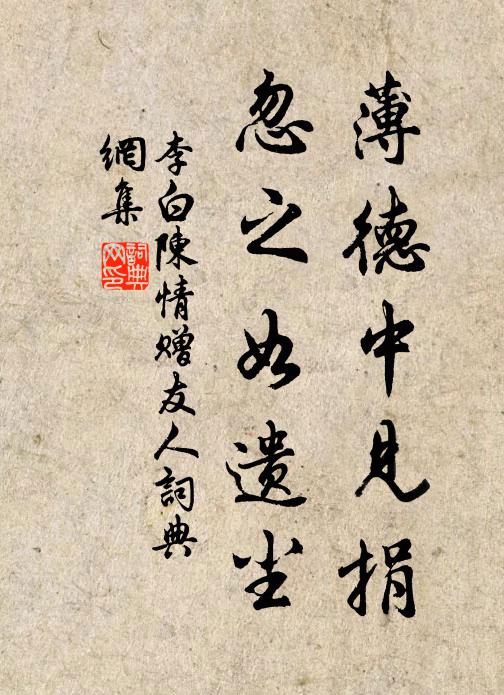 薄德中見捐
忽之如遺尘
李白陳情赠友人詞典
網集
詞典
网印